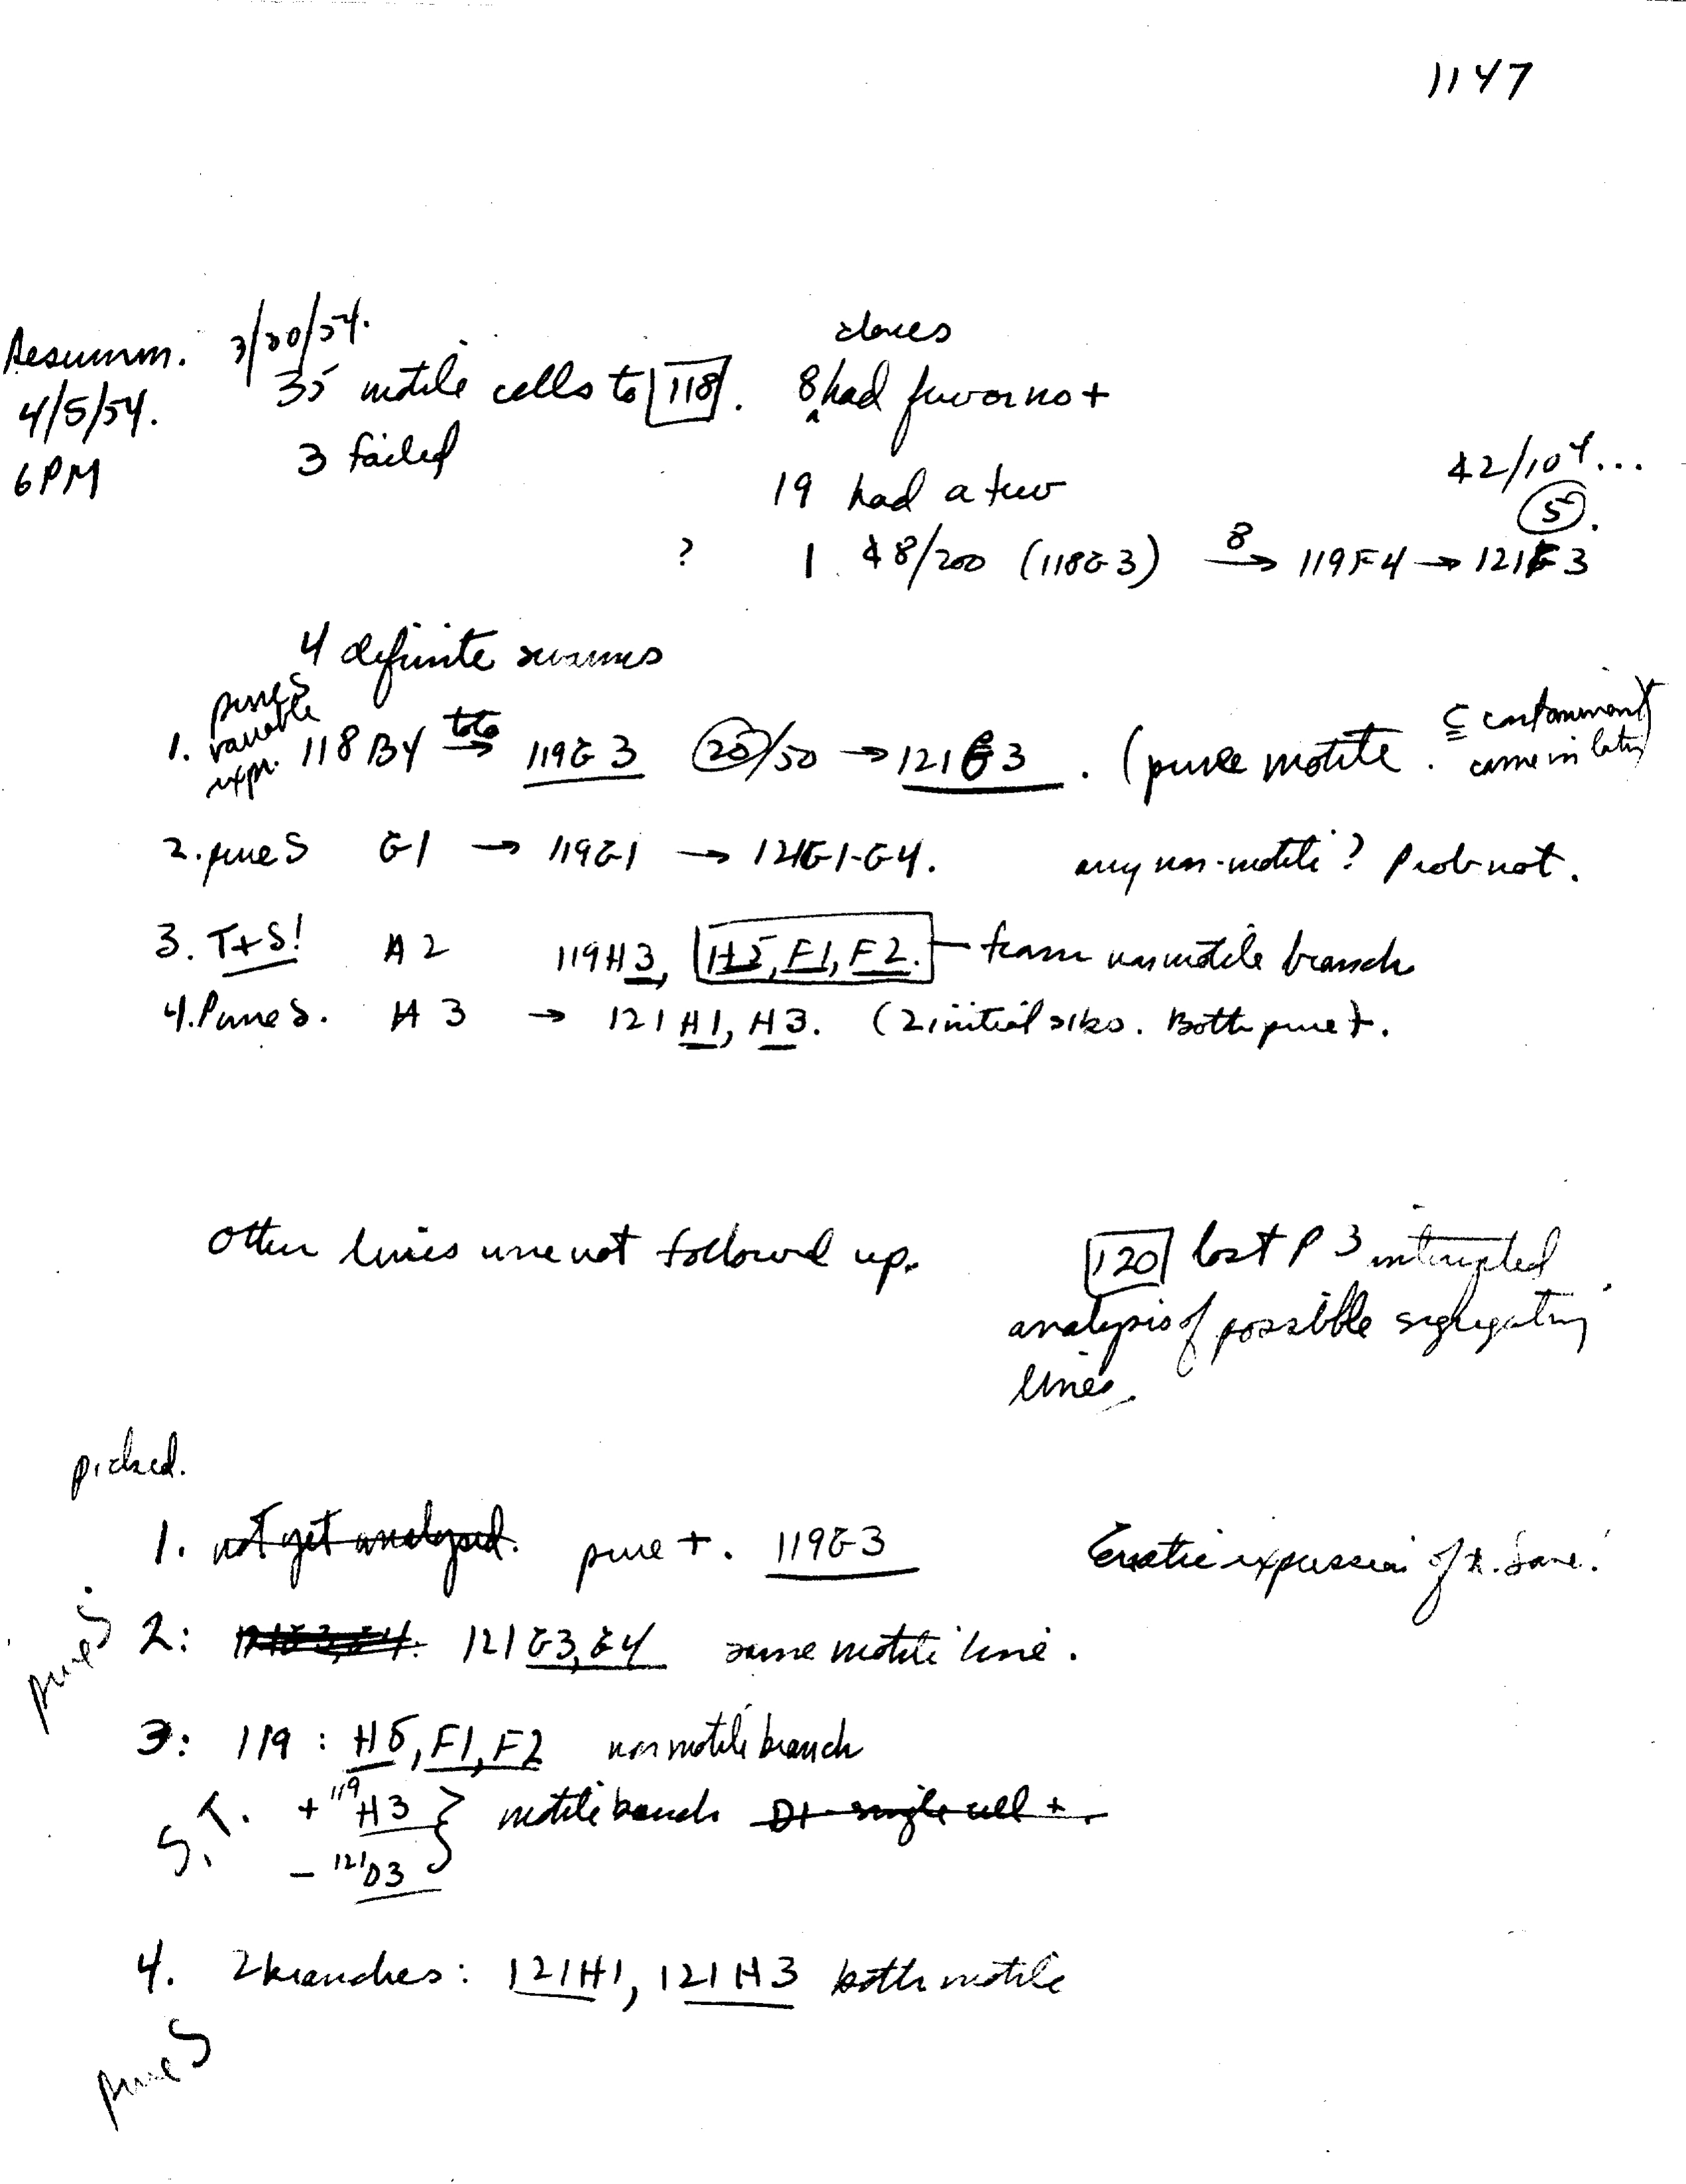 1147
Resumm. 3/30/54.
4/5/54.
6PM
35 motile cells to 118. 8 clones had few or no +
3 failed
19 had a few
42/10⁴...
5.
? 1. 48/200 (118G3) 8→ 119F4 → 121 3
4 definite swarms
1. pure S variable expr. 118B4 toto→ 119G3 20/50 → 121G3. (pure motile. contaminant came in later)
2. pure S G1 → 119G1 → 121G1-G4. any non-motile? Prob not.
3. T+S! A2 119H3, H5, F1, F2. — from nonmotile branch
4. Pure S. H3 → 121H1, H3. (2 initial sibs. Both pure +.
Other lines were not followed up.
120 lost P 3 interrupted
analysis of possible segregating
lines.
picked.
1. not yet analysed. pure +. 119G3 Erratic expression of
pure S 2: 121G3,G4. 121 G3, G4 same motile line.
3: 119: H5, F1, F2 nonmotile branch
S.T. + 119 H3 } motile branch D1 single cell +.
- 121 D3
4. 2 branches: 121H1, 121H3 both motile
pure S